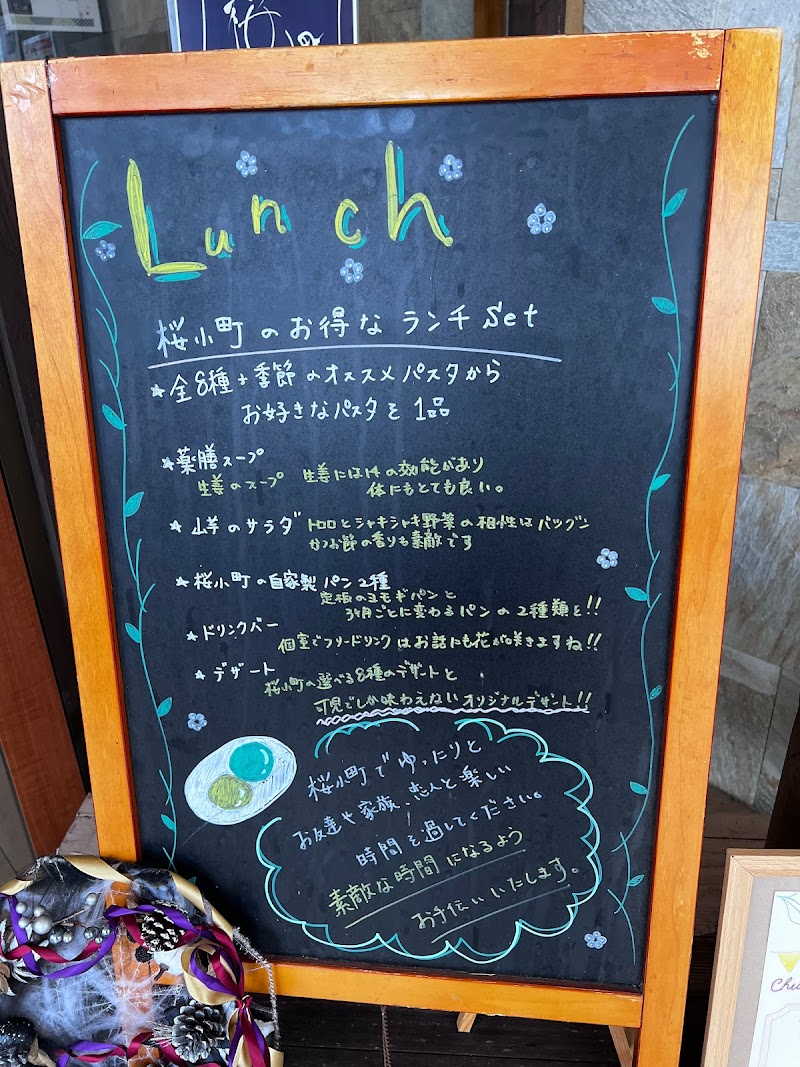 桜小
Lunch
桜小町のお得なランチSet
★全8種+季節のオススメパスタから
お好きなパスタを1品
★薬膳スープ
生姜のスープ 生姜には14の効能があり
体にもとても良い。
★山芋のサラダ トロロとシャキシャキ野菜の相性はバツグン
かつお節の香りも素敵です
★桜小町の自家製パン2種
定板のヨモギパンと
3ヶ月ごとに変わるパンの2種類を!!
★ドリンクバー
個室でフリードリンクはお話にも花が咲きますね!!
★デザート
桜小町の選べる8種のデザートと
可児でしか味わえないオリジナルデザート!!
桜小町でゆったりと
お友達や家族、恋人と楽しい
時間を過してください。
素敵な時間になるよう
お手伝いいたします。